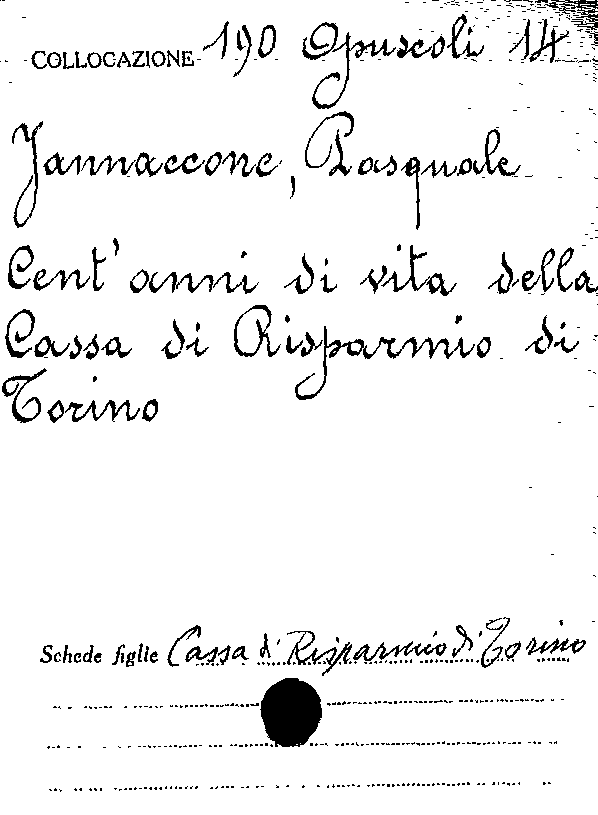 COLLOCAZIONE 190 Opuscoli 14
Jannaccone, Pasquale
Cent'anni di vita della
Cassa di Risparmio di
Torino
Schede figlie Cassa di Risparmio di Torino